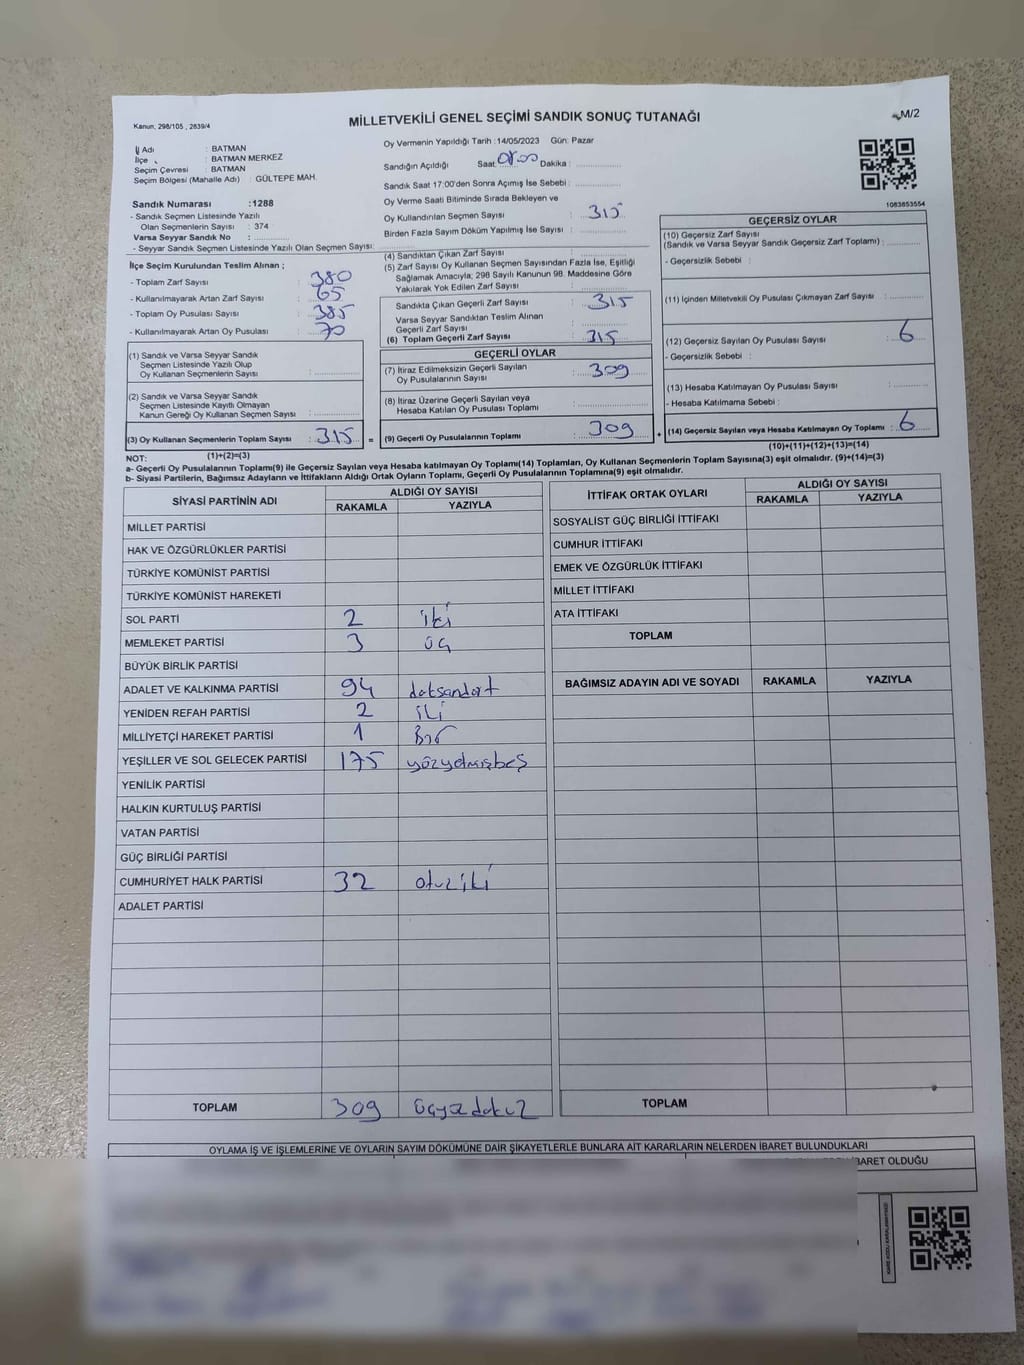 Kanun, 298/105 , 2839/4
MİLLETVEKİLİ GENEL SEÇİMİ SANDIK SONUÇ TUTANAĞI
M/2
İl Adı : BATMAN
İlçe : BATMAN MERKEZ
Seçim Çevresi : BATMAN
Seçim Bölgesi (Mahalle Adı) : GÜLTEPE MAH.
Sandık Numarası :1288
- Sandık Seçmen Listesinde Yazılı
Olan Seçmenlerin Sayısı : 374
Varsa Seyyar Sandık No :
- Seyyar Sandık Seçmen Listesinde Yazılı Olan Seçmen Sayısı:
İlçe Seçim Kurulundan Teslim Alınan ;
- Toplam Zarf Sayısı : 380
- Kullanılmayarak Artan Zarf Sayısı : 65
- Toplam Oy Pusulası Sayısı : 385
- Kullanılmayarak Artan Oy Pusulası : 70
(1) Sandık ve Varsa Seyyar Sandık
Seçmen Listesinde Yazılı Olup
Oy Kullanan Seçmenlerin Sayısı :
(2) Sandık ve Varsa Seyyar Sandık
Seçmen Listesinde Kayıtlı Olmayan
Kanun Gereği Oy Kullanan Seçmen Sayısı :
(3) Oy Kullanan Seçmenlerin Toplam Sayısı : 315 =
(1)+(2)=(3)
Oy Vermenin Yapıldığı Tarih :14/05/2023 Gün: Pazar
Sandığın Açıldığı Saat 08:00 Dakika :
Sandık Saat 17:00'den Sonra Açılmış İse Sebebi :
Oy Verme Saati Bitiminde Sırada Bekleyen ve
Oy Kullandırılan Seçmen Sayısı : 315
Birden Fazla Sayım Döküm Yapılmış İse Sayısı :
(4) Sandıktan Çıkan Zarf Sayısı :
(5) Zarf Sayısı Oy Kullanan Seçmen Sayısından Fazla İse, Eşitliği
Sağlamak Amacıyla; 298 Sayılı Kanunun 98. Maddesine Göre
Yakılarak Yok Edilen Zarf Sayısı :
Sandıkta Çıkan Geçerli Zarf Sayısı : 315
Varsa Seyyar Sandıktan Teslim Alınan
Geçerli Zarf Sayısı :
(6) Toplam Geçerli Zarf Sayısı : 315
GEÇERLİ OYLAR
(7) İtiraz Edilmeksizin Geçerli Sayılan
Oy Pusulalarının Sayısı : 309
(8) İtiraz Üzerine Geçerli Sayılan veya
Hesaba Katılan Oy Pusulası Toplamı :
(9) Geçerli Oy Pusulalarının Toplamı : 309 +
1083853554
GEÇERSİZ OYLAR
(10) Geçersiz Zarf Sayısı
(Sandık ve Varsa Seyyar Sandık Geçersiz Zarf Toplamı) :
- Geçersizlik Sebebi :
(11) İçinden Milletvekili Oy Pusulası Çıkmayan Zarf Sayısı :
(12) Geçersiz Sayılan Oy Pusulası Sayısı : 6
- Geçersizlik Sebebi :
(13) Hesaba Katılmayan Oy Pusulası Sayısı :
- Hesaba Katılmama Sebebi :
(14) Geçersiz Sayılan veya Hesaba Katılmayan Oy Toplamı : 6
(10)+(11)+(12)+(13)=(14)
NOT:
a- Geçerli Oy Pusulalarının Toplamı(9) ile Geçersiz Sayılan veya Hesaba katılmayan Oy Toplamı(14) Toplamları, Oy Kullanan Seçmenlerin Toplam Sayısına(3) eşit olmalıdır. (9)+(14)=(3)
b- Siyasi Partilerin, Bağımsız Adayların ve İttifakların Aldığı Ortak Oyların Toplamı, Geçerli Oy Pusulalarının Toplamına(9) eşit olmalıdır.
SİYASİ PARTİNİN ADI
ALDIĞI OY SAYISI
RAKAMLA YAZIYLA
MİLLET PARTİSİ
HAK VE ÖZGÜRLÜKLER PARTİSİ
TÜRKİYE KOMÜNİST PARTİSİ
TÜRKİYE KOMÜNİST HAREKETİ
SOL PARTİ 2 iki
MEMLEKET PARTİSİ 3 üç
BÜYÜK BİRLİK PARTİSİ
ADALET VE KALKINMA PARTİSİ 94 doksandört
YENİDEN REFAH PARTİSİ 2 iki
MİLLİYETÇİ HAREKET PARTİSİ 1 Bir
YEŞİLLER VE SOL GELECEK PARTİSİ 175 yüzyetmişbeş
YENİLİK PARTİSİ
HALKIN KURTULUŞ PARTİSİ
VATAN PARTİSİ
GÜÇ BİRLİĞİ PARTİSİ
CUMHURİYET HALK PARTİSİ 32 otuziki
ADALET PARTİSİ
TOPLAM 309 üçyüzdokuz
İTTİFAK ORTAK OYLARI
ALDIĞI OY SAYISI
RAKAMLA YAZIYLA
SOSYALİST GÜÇ BİRLİĞİ İTTİFAKI
CUMHUR İTTİFAKI
EMEK VE ÖZGÜRLÜK İTTİFAKI
MİLLET İTTİFAKI
ATA İTTİFAKI
TOPLAM
BAĞIMSIZ ADAYIN ADI VE SOYADI RAKAMLA YAZIYLA
TOPLAM
OYLAMA İŞ VE İŞLEMLERİNE VE OYLARIN SAYIM DÖKÜMÜNE DAİR ŞİKAYETLERLE BUNLARA AİT KARARLARIN NELERDEN İBARET BULUNDUKLARI
İBARET OLDUĞU